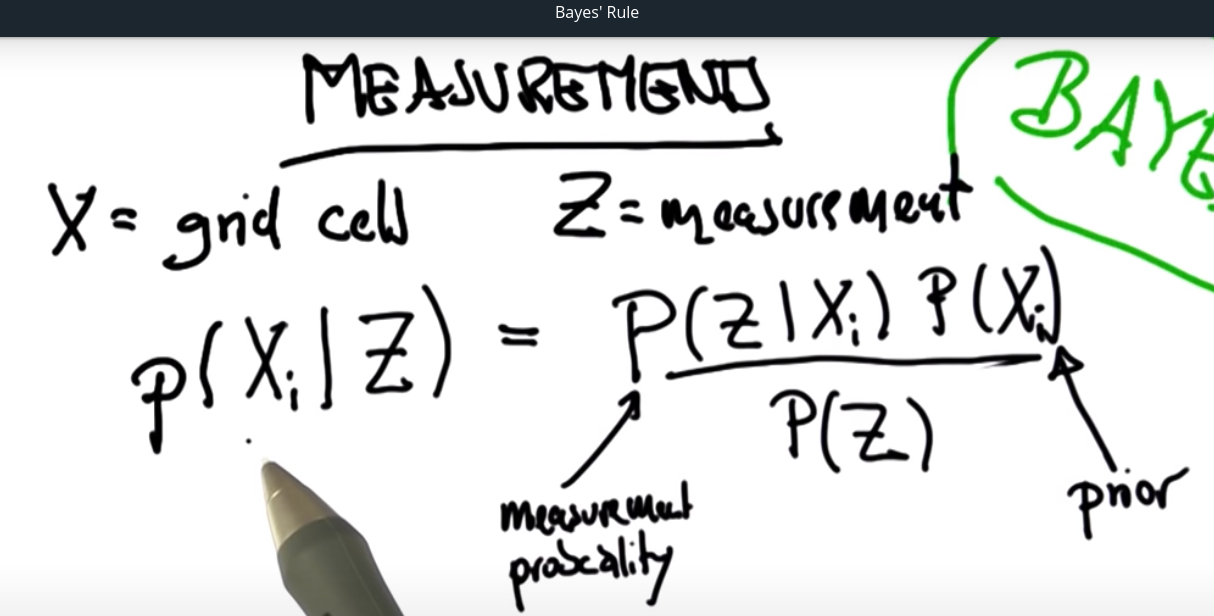 Bayes' Rule
MEASUREMENTS
BAYE
X = grid cell Z = measurement
p(Xi|Z) = P(Z|Xi) P(Xi)
P(Z)
measurement
probability
prior